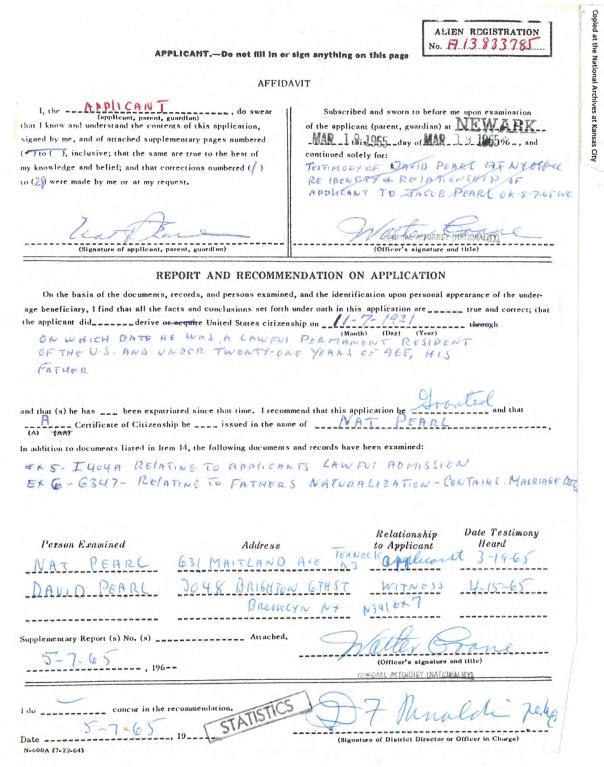 Copied at the National Archives at Kansas City
ALIEN REGISTRATION
No. A 13 833 785
APPLICANT.—Do not fill in or sign anything on this page
AFFIDAVIT
I, the APPLICANT, do swear
(applicant, parent, guardian)
that I know and understand the contents of this application,
signed by me, and of attached supplementary pages numbered
( ) to ( ), inclusive; that the same are true to the best of
my knowledge and belief; and that corrections numbered (1)
to (28) were made by me or at my request.
Nat Pearl
(Signature of applicant, parent, guardian)
Subscribed and sworn to before me upon examination
of the applicant (parent, guardian) at NEWARK
MAR 19 1965 this day of MAR 19 1965 196--, and
continued solely for:
TESTIMONY OF DAVID PEARL AT NY OFFICE
RE IDENTITY & RELATIONSHIP OF
APPLICANT TO JACOB PEARL OK 5-7-65 WC
Walter Crane
GENERAL ATTORNEY (NATIONALITY)
(Officer's signature and title)
REPORT AND RECOMMENDATION ON APPLICATION
On the basis of the documents, records, and persons examined, and the identification upon personal appearance of the under-
age beneficiary, I find that all the facts and conclusions set forth under oath in this application are ------- true and correct; that
the applicant did -------- derive or acquire United States citizenship on 11-7-1921 through
(Month) (Day) (Year)
ON WHICH DATE HE WAS A LAWFUL PERMANENT RESIDENT
OF THE U.S. AND UNDER TWENTY-ONE YEARS OF AGE, HIS
FATHER
and that (s) he has ---- been expatriated since that time. I recommend that this application be Granted and that
A Certificate of Citizenship be ---- issued in the name of NAT PEARL.
(A) (AA)
In addition to documents listed in Item 14, the following documents and records have been examined:
EX 5- I404A RELATING TO APPLICANTS LAWFUL ADMISSION
EX 6- G347- RELATING TO FATHERS NATURALIZATION - CONTAINS MARRIAGE
Person Examined Address Relationship to Applicant Date Testimony Heard
NAT PEARL 631 MAITLAND AVE TEANECK NJ applicant 3-19-65
DAVID PEARL 3048 BRIGHTON 6TH ST WITNESS 4-15-65
BROOKLYN NY EX 7
Supplementary Report (s) No. (s) ---------------- Attached,
5-7-65, 196--
Walter Crane
(Officer's signature and title)
GENERAL ATTORNEY (NATIONALITY)
I do ------------ concur in the recommendation.
Date 5-7-65 19
STATISTICS
(Signature of District Director or Officer in Charge)
N-600A (7-22-64)